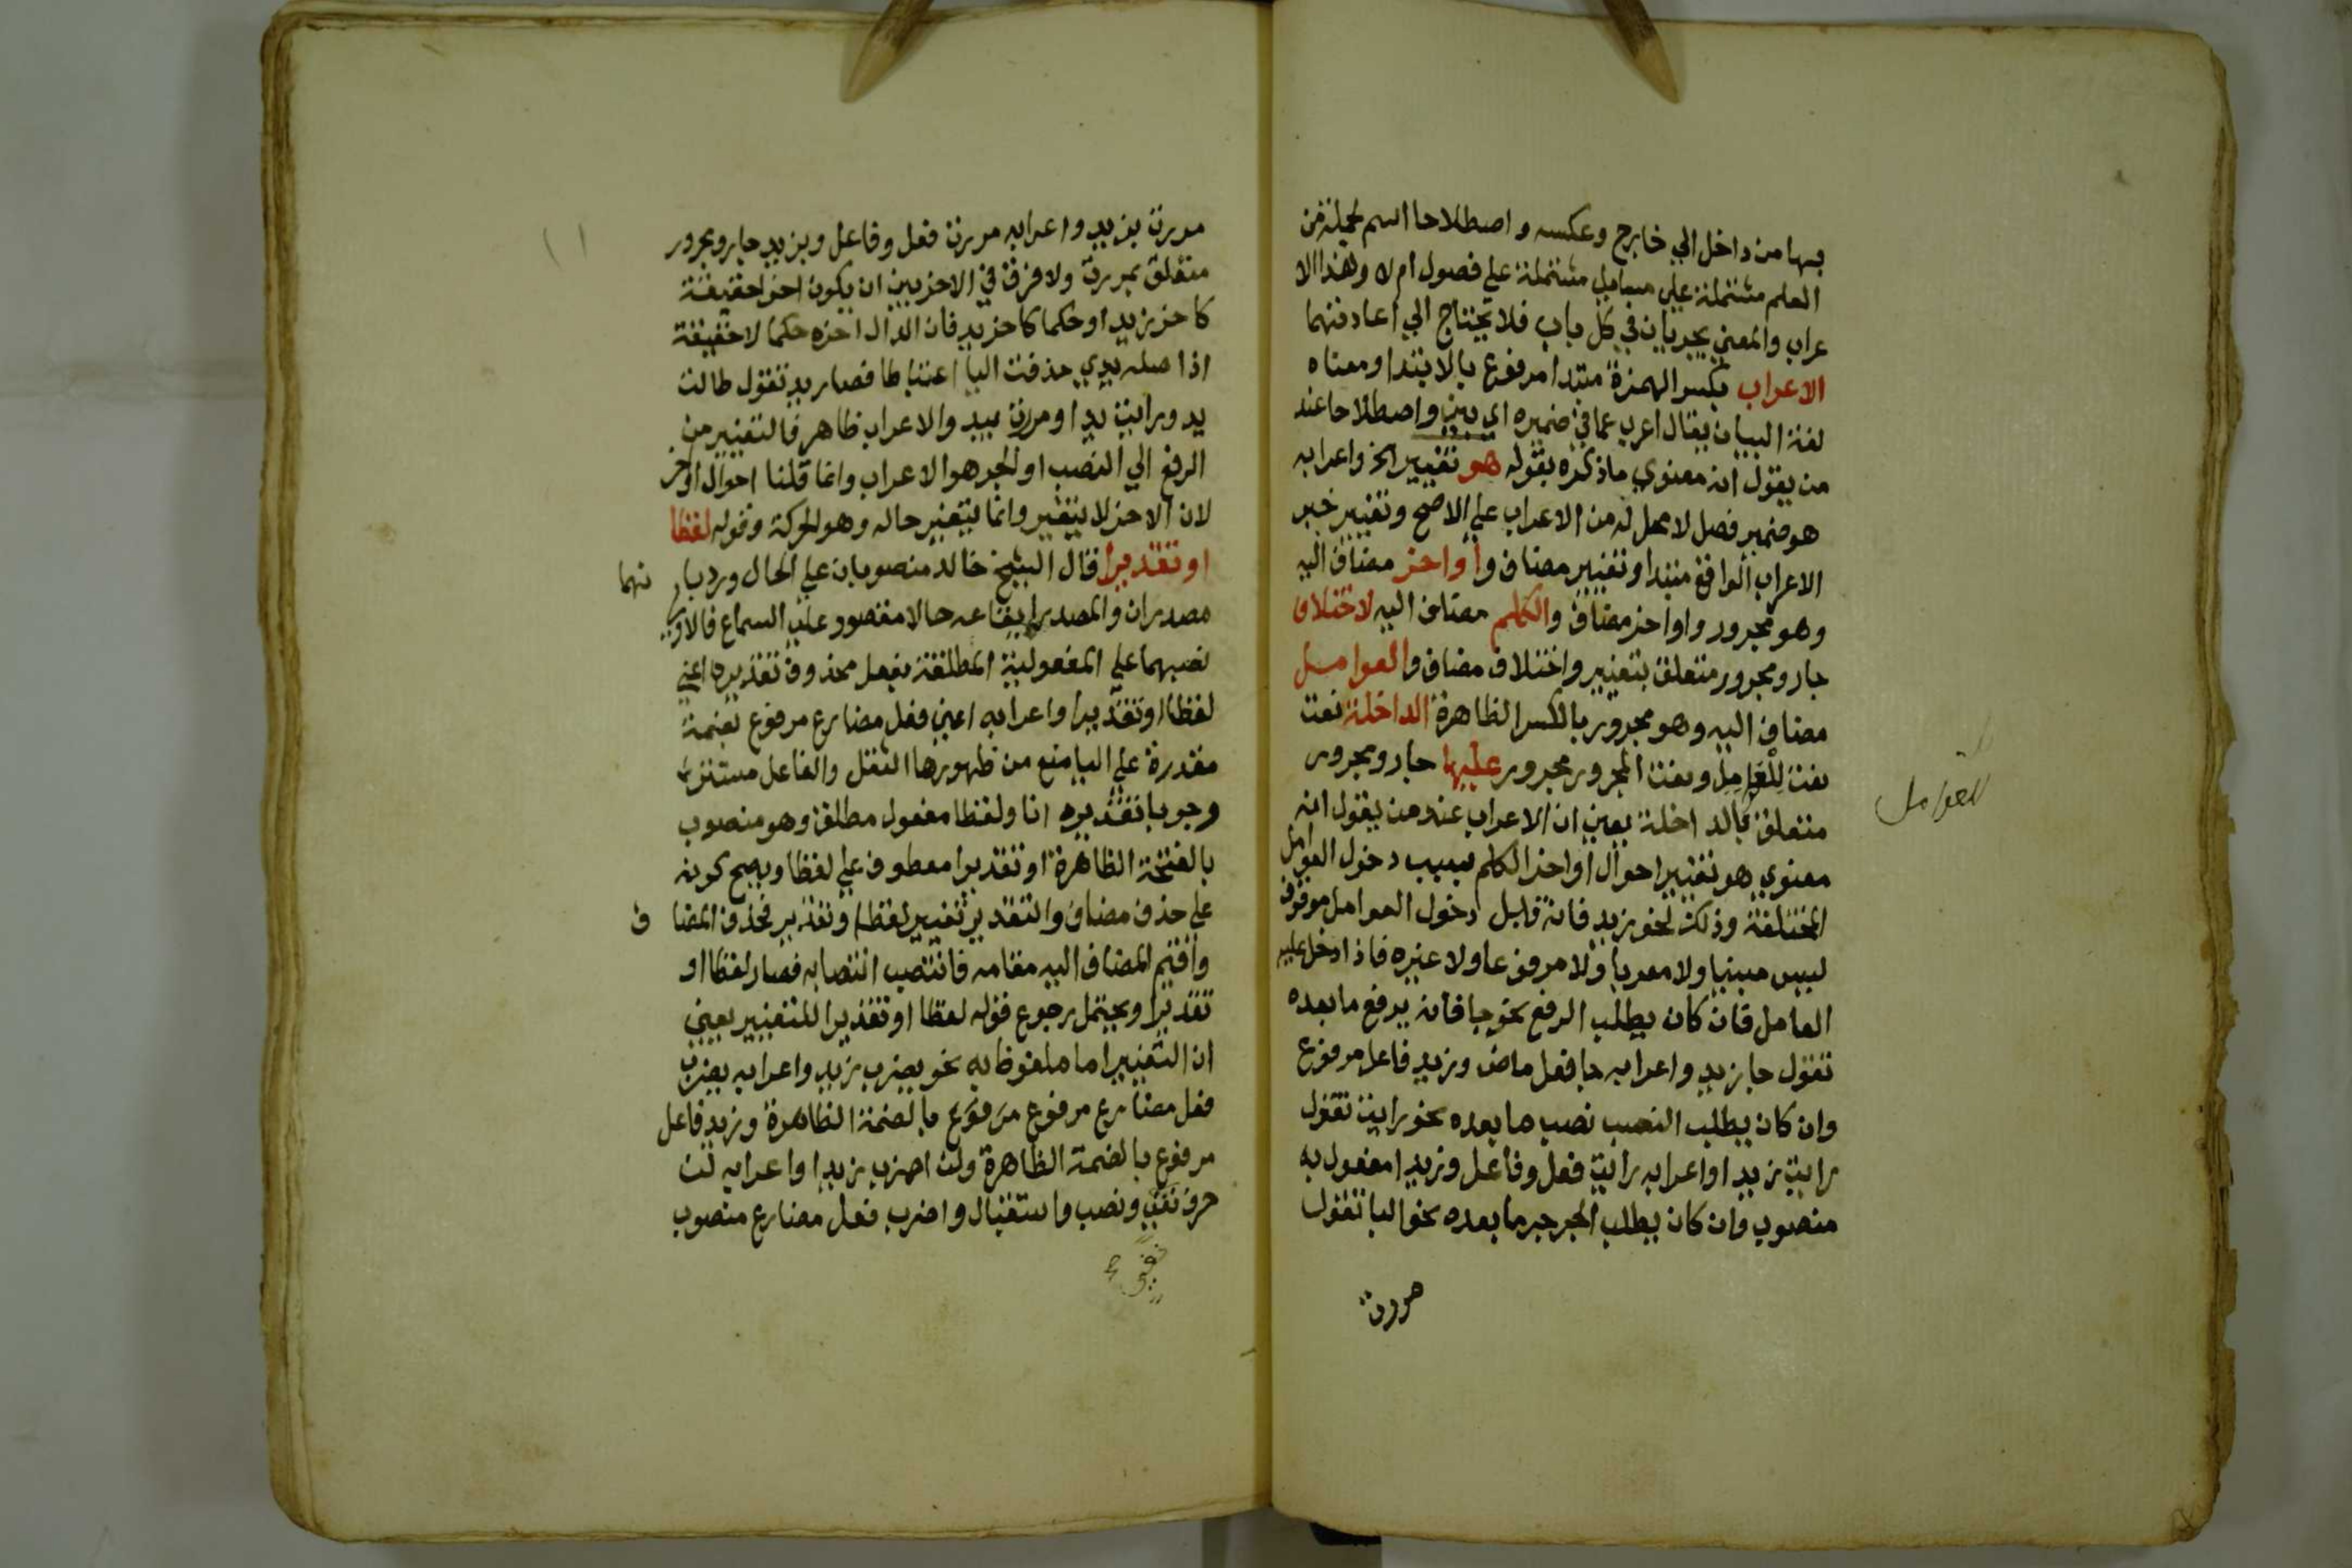 بها من داخل الي خارج وعكسه واصطلاحا اسم لجملة من
العلم مشتملة علي مسايل مشتملة علي فصول ام لا وهذا الا
عراب والمعني يجريان في كل باب فلا يحتاج الي اعادتهما
الاعراب بكسر الهمزة مبتدا مرفوع بالابتدا ومعناه
لغة البيان يقال اعرب عما في ضميره اي بين واصطلاحا عند
من يقول انه معنوي ما ذكره بقوله هو تغيير الخ واعرابه
هو ضمير فصل لا محل له من الاعراب علي الاصح وتغيير خبر
الاعراب الواقع مبتدا وتغيير مضاف واواخر مضاف اليه
وهو مجرور واواخر مضاف والكلم مضاف اليه لاختلاف
جار ومجرور متعلق بتغيير واختلاف مضاف والعوامل
مضاف اليه وهو مجرور بالكسر الظاهرة الداخلة نعت
نعت للعامل ونعت المجرور مجرور عليها جار ومجرور
للعوامل
متعلق بالداخلة يعني ان الاعراب عند من يقول انه
معنوي هو تغيير احوال اواخر الكلم بسبب دخول العوامل
المختلفة وذلك نحو زيد فانه قبل دخول العوامل موقوف
ليس مبنيا ولا معربا ولا مرفوعا ولا غيره فاذا دخل عليه
العامل فان كان يطلب الرفع نحو جا فانه يرفع ما بعده
تقول جا زيد واعرابه جا فعل ماض وزيد فاعل مرفوع
وان كان يطلب النصب نصب ما بعده نحو رايت تقول
رايت زيدا واعرابه رايت فعل وفاعل وزيدا مفعول به
منصوب وان كان يطلب الجر جر ما بعده نحو البا تقول
مررت
١١
مررت بزيد واعرابه مررت فعل وفاعل وبزيد جار ومجرور
متعلق بمررت ولا فرق في الاخر بين ان يكون اخرا حقيقة
كاخر زيد او حكما كاخر يد فان الدال اخره حكما لا حقيقة
اذ اصله يدي حذفت اليا اعتباطا فصار يد تقول طالت
يد ورايت يدا ومررت بيد والاعراب ظاهر فالتغيير من
الرفع الي النصب او الجر هو الاعراب وانما قلنا احوال اواخر
لان الاخر لا يتغير وانما يتغير حاله وهو الحركة وقوله لفظا
او تقديرا قال الشيخ خالد منصوبان علي الحال ورد بانهما
مصدران والمصدر ايقاعه حالا مقصور علي السماع فالاولي
نصبهما علي المفعولية المطلقة بفعل محذوف تقديره اعني
لفظا او تقديرا واعرابه اعني فعل مضارع مرفوع بضمة
مقدرة علي اليا منع من ظهورها الثقل والفاعل مستتر
وجوبا تقديره انا ولفظا مفعول مطلق وهو منصوب
بالفتحة الظاهرة او تقديرا معطوف علي لفظا ويصح كونه
علي حذف مضاف والتقدير تغيير لفظ او تقدير فحذف المضاف
واقيم المضاف اليه مقامه فانتصب انتصابه فصار لفظا او
تقديرا ويحتمل رجوع قوله لفظا او تقديرا للتغيير يعني
ان التغيير اما ملفوظ به نحو يضرب زيد واعرابه يضرب
فعل مضارع مرفوع مرفوع بالضمة الظاهرة وزيد فاعل
مرفوع بالضمة الظاهرة ولن اضرب زيدا واعرابه لن
حرف نفي ونصب واستقبال واضرب فعل مضارع منصوب